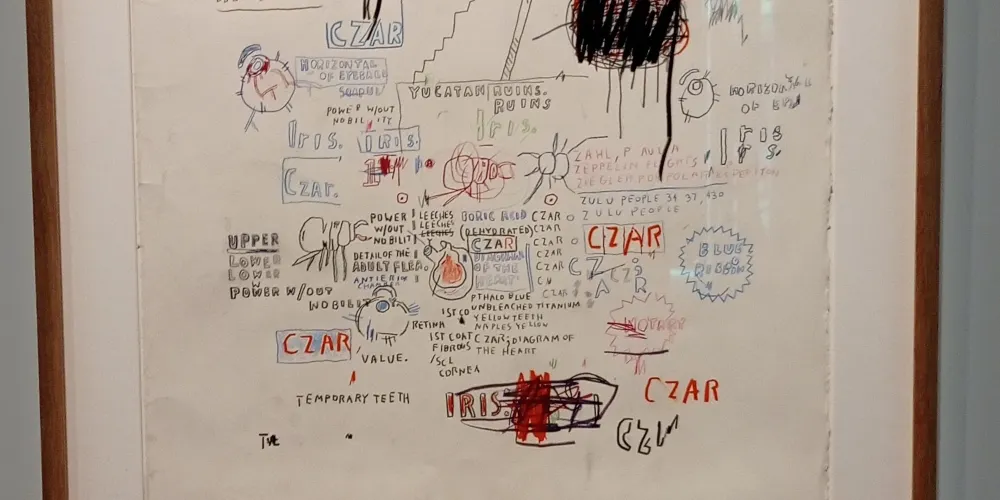 CZAR
HORIZONTAL
OF EYEBALL
POWER W/OUT
NOBILITY
YUCATAN RUINS.
RUINS
Iris.
Iris. IRIS.
OF
Iris
CZAR.
ZAHL, PAULA
ZEPPELIN FLIGHTS
ZIEGLER POLAR EXPEDITION
ZULU PEOPLE 34 37, 430
ZULU PEOPLE
UPPER
LOWER
LOWER
POWER W/OUT
NOBILITY
POWER
W/OUT
NOBILITY
DETAIL OF THE
ADULT FLEA.
ANTERIOR
CHAMBER
LEECHES
LEECHES
LEECHES
BORIC ACID
(DEHYDRATED)
CZAR
DIAGRAM
OF THE
HEART
CZAR
CZAR
CZAR
CZAR
CZAR
CZAR
CZAR
CZAR
CZAR
CZAR
BLUE
RIBBON
PTHALO BLUE
UNBLEACHED TITANIUM
YELLOW TEETH
NAPLES YELLOW
CZAR; DIAGRAM OF
THE HEART
1ST CO
RETINA
1ST COAT
FIBROUS
/SCL
CORNEA
NOTARY
CZAR
VALUE.
TEMPORARY TEETH
IRIS.
CZAR